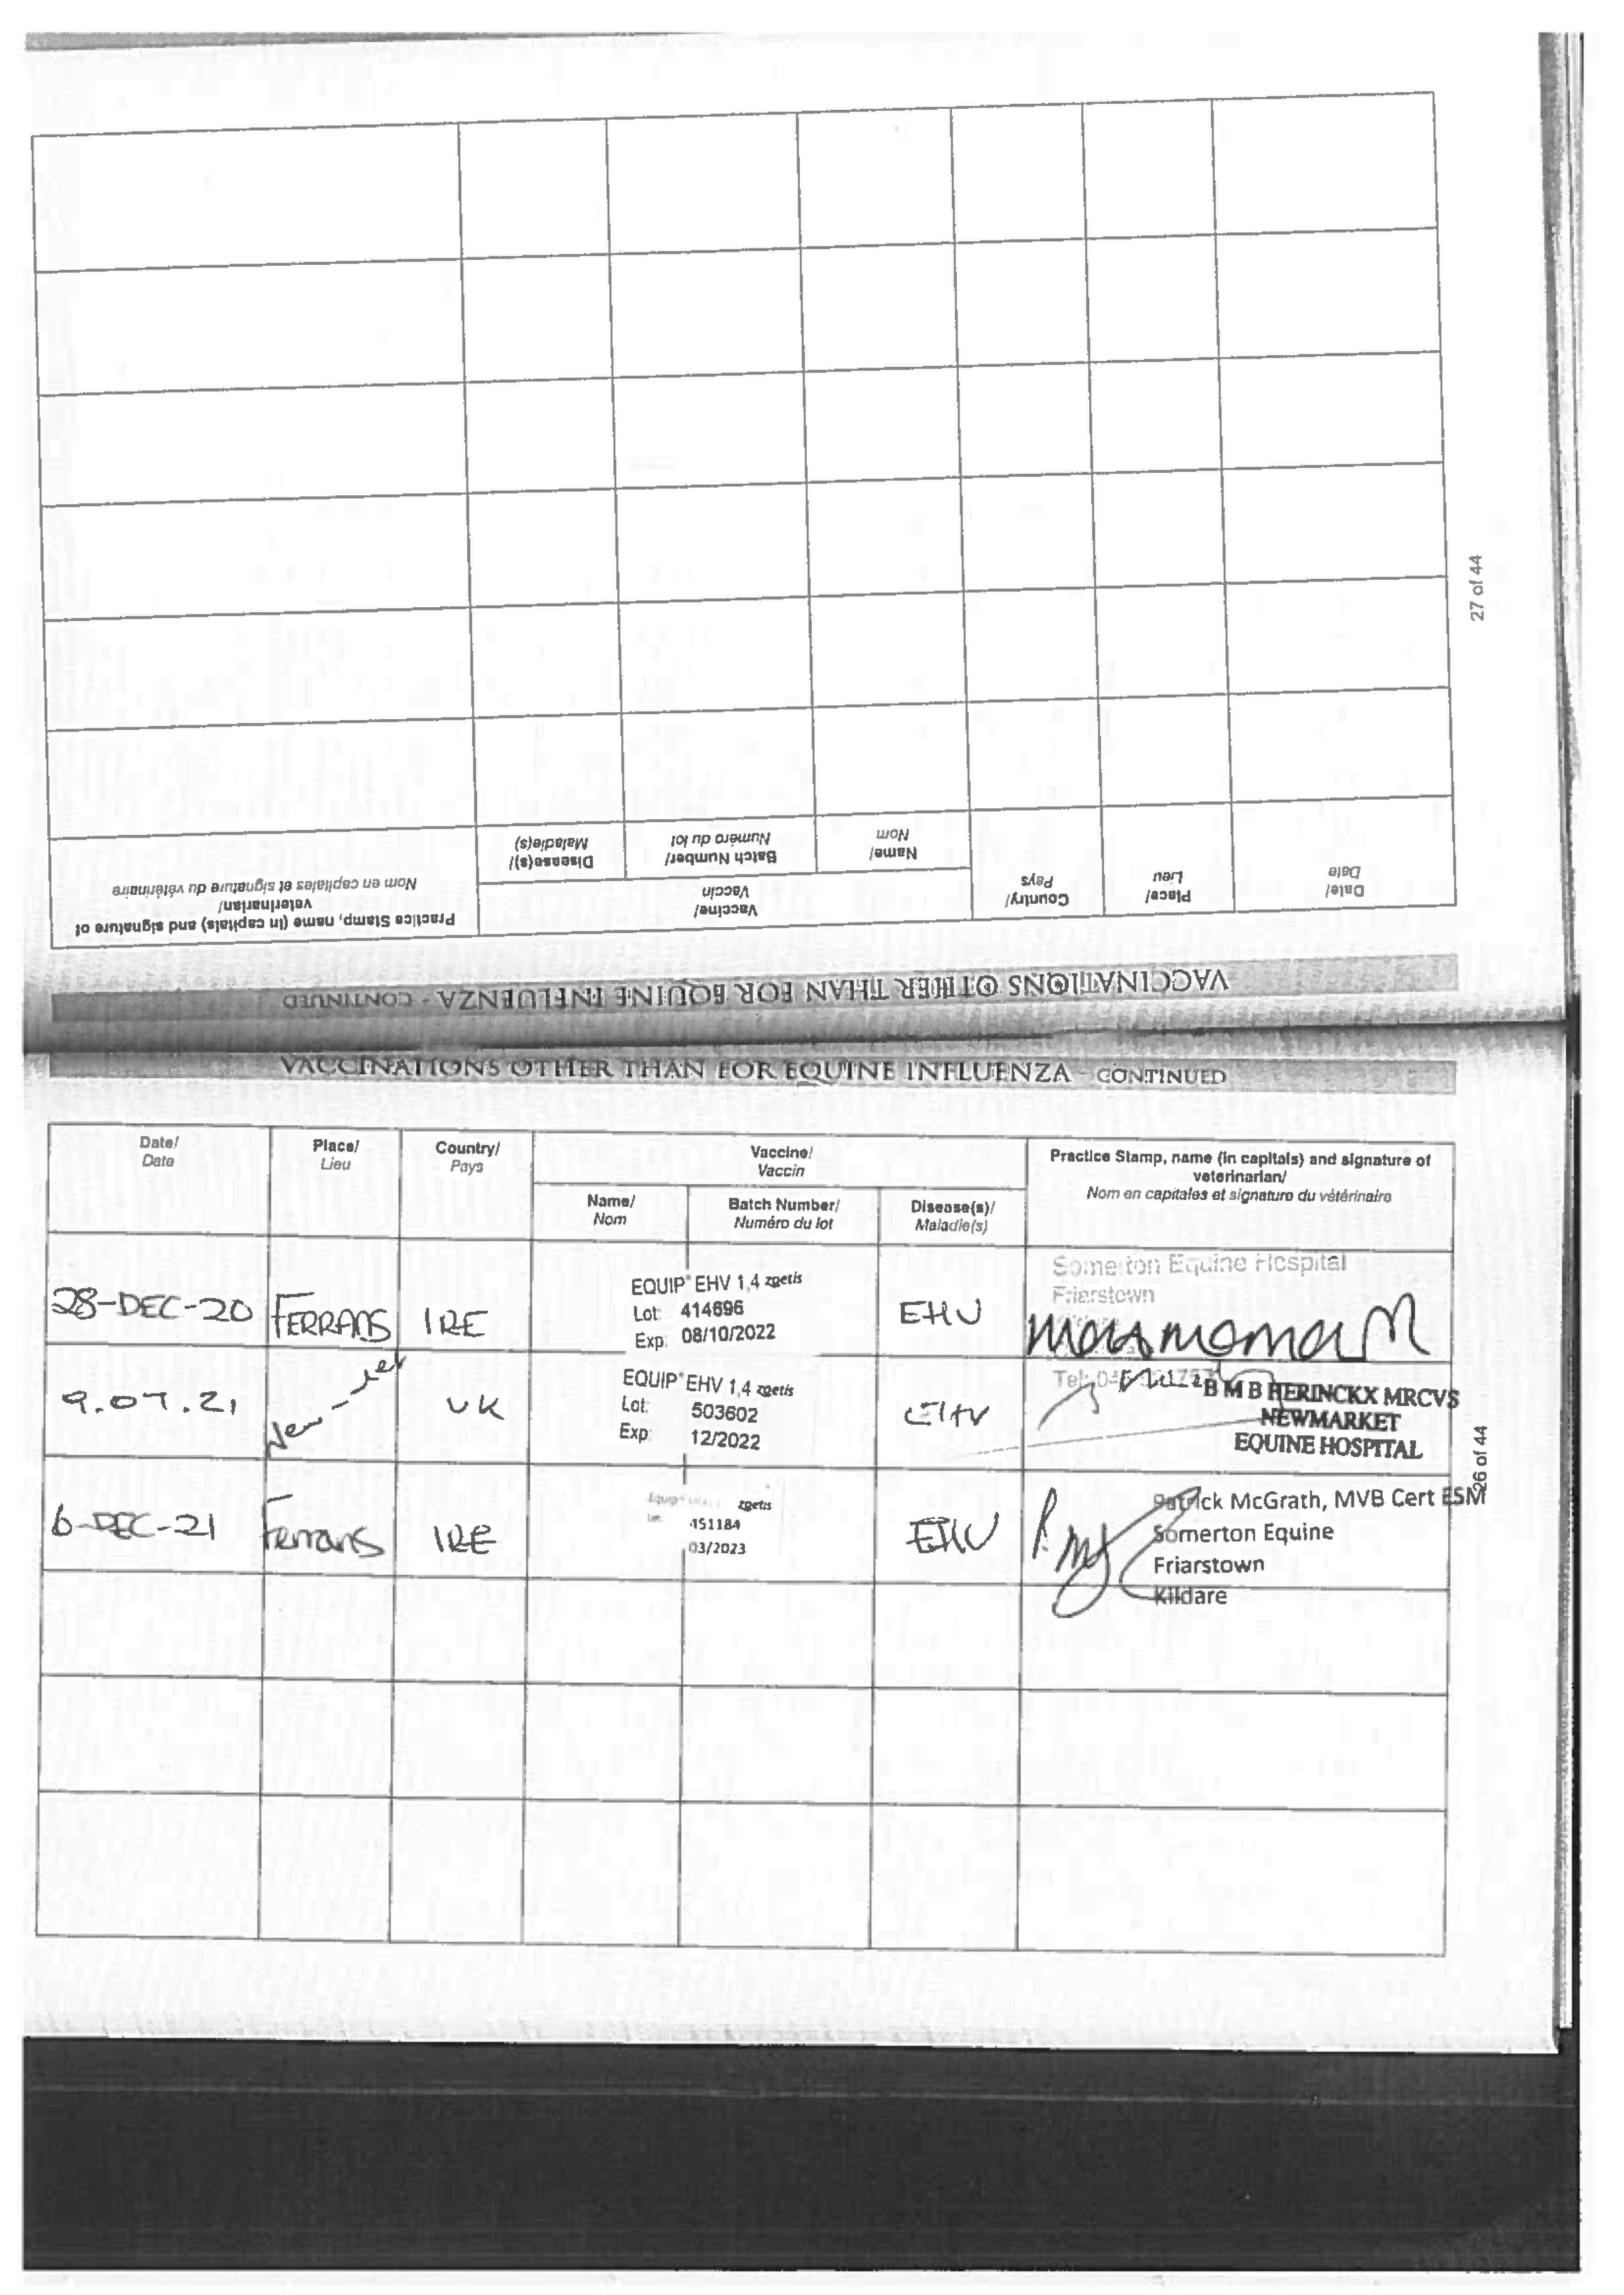 27 of 44
VACCINATIONS OTHER THAN FOR EQUINE INFLUENZA - CONTINUED
Date/
Date
Place/
Lieu
Country/
Pays
Vaccine/
Vaccin
Name/
Nom
Batch Number/
Numéro du lot
Disease(s)/
Maladie(s)
Practice Stamp, name (in capitals) and signature of
veterinarian/
Nom en capitales et signature du vétérinaire
VACCINATIONS OTHER THAN FOR EQUINE INFLUENZA - CONTINUED
Date/
Date
Place/
Lieu
Country/
Pays
Vaccine/
Vaccin
Name/
Nom
Batch Number/
Numéro du lot
Disease(s)/
Maladie(s)
Practice Stamp, name (in capitals) and signature of
veterinarian/
Nom en capitales et signature du vétérinaire
28-DEC-20
FERRANS
IRE
EQUIP® EHV 1,4 zoetis
Lot: 414696
Exp: 08/10/2022
EHV
Somerton Equine Hospital
Friarstown
Tel:
9.07.21
UK
EQUIP® EHV 1,4 zoetis
Lot: 503602
Exp: 12/2022
EHV
B M B HERINCKX MRCVS
NEWMARKET
EQUINE HOSPITAL
6-DEC-21
Ferrans
IRE
Equip® zoetis
Lot: 451184
03/2023
EHV
Patrick McGrath, MVB Cert ESM
Somerton Equine
Friarstown
Kildare
26 of 44